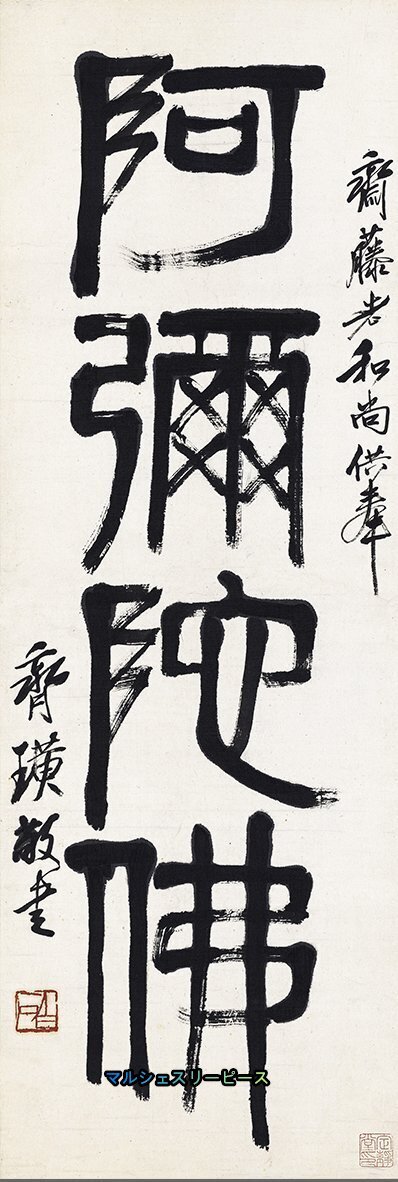 齋藤老和尚供奉
阿彌陀佛
齊璜敬書
白石
マルシェスリーピース